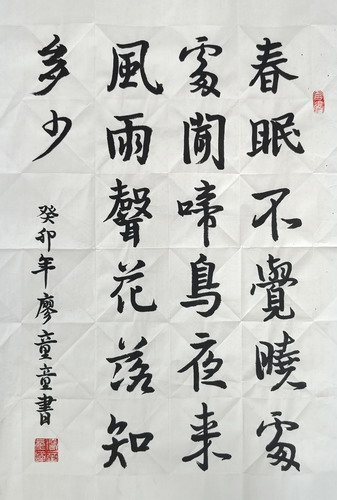 春眠不覺曉處
處聞啼鳥夜来
風雨聲花落知
多少
癸卯年廖童童書